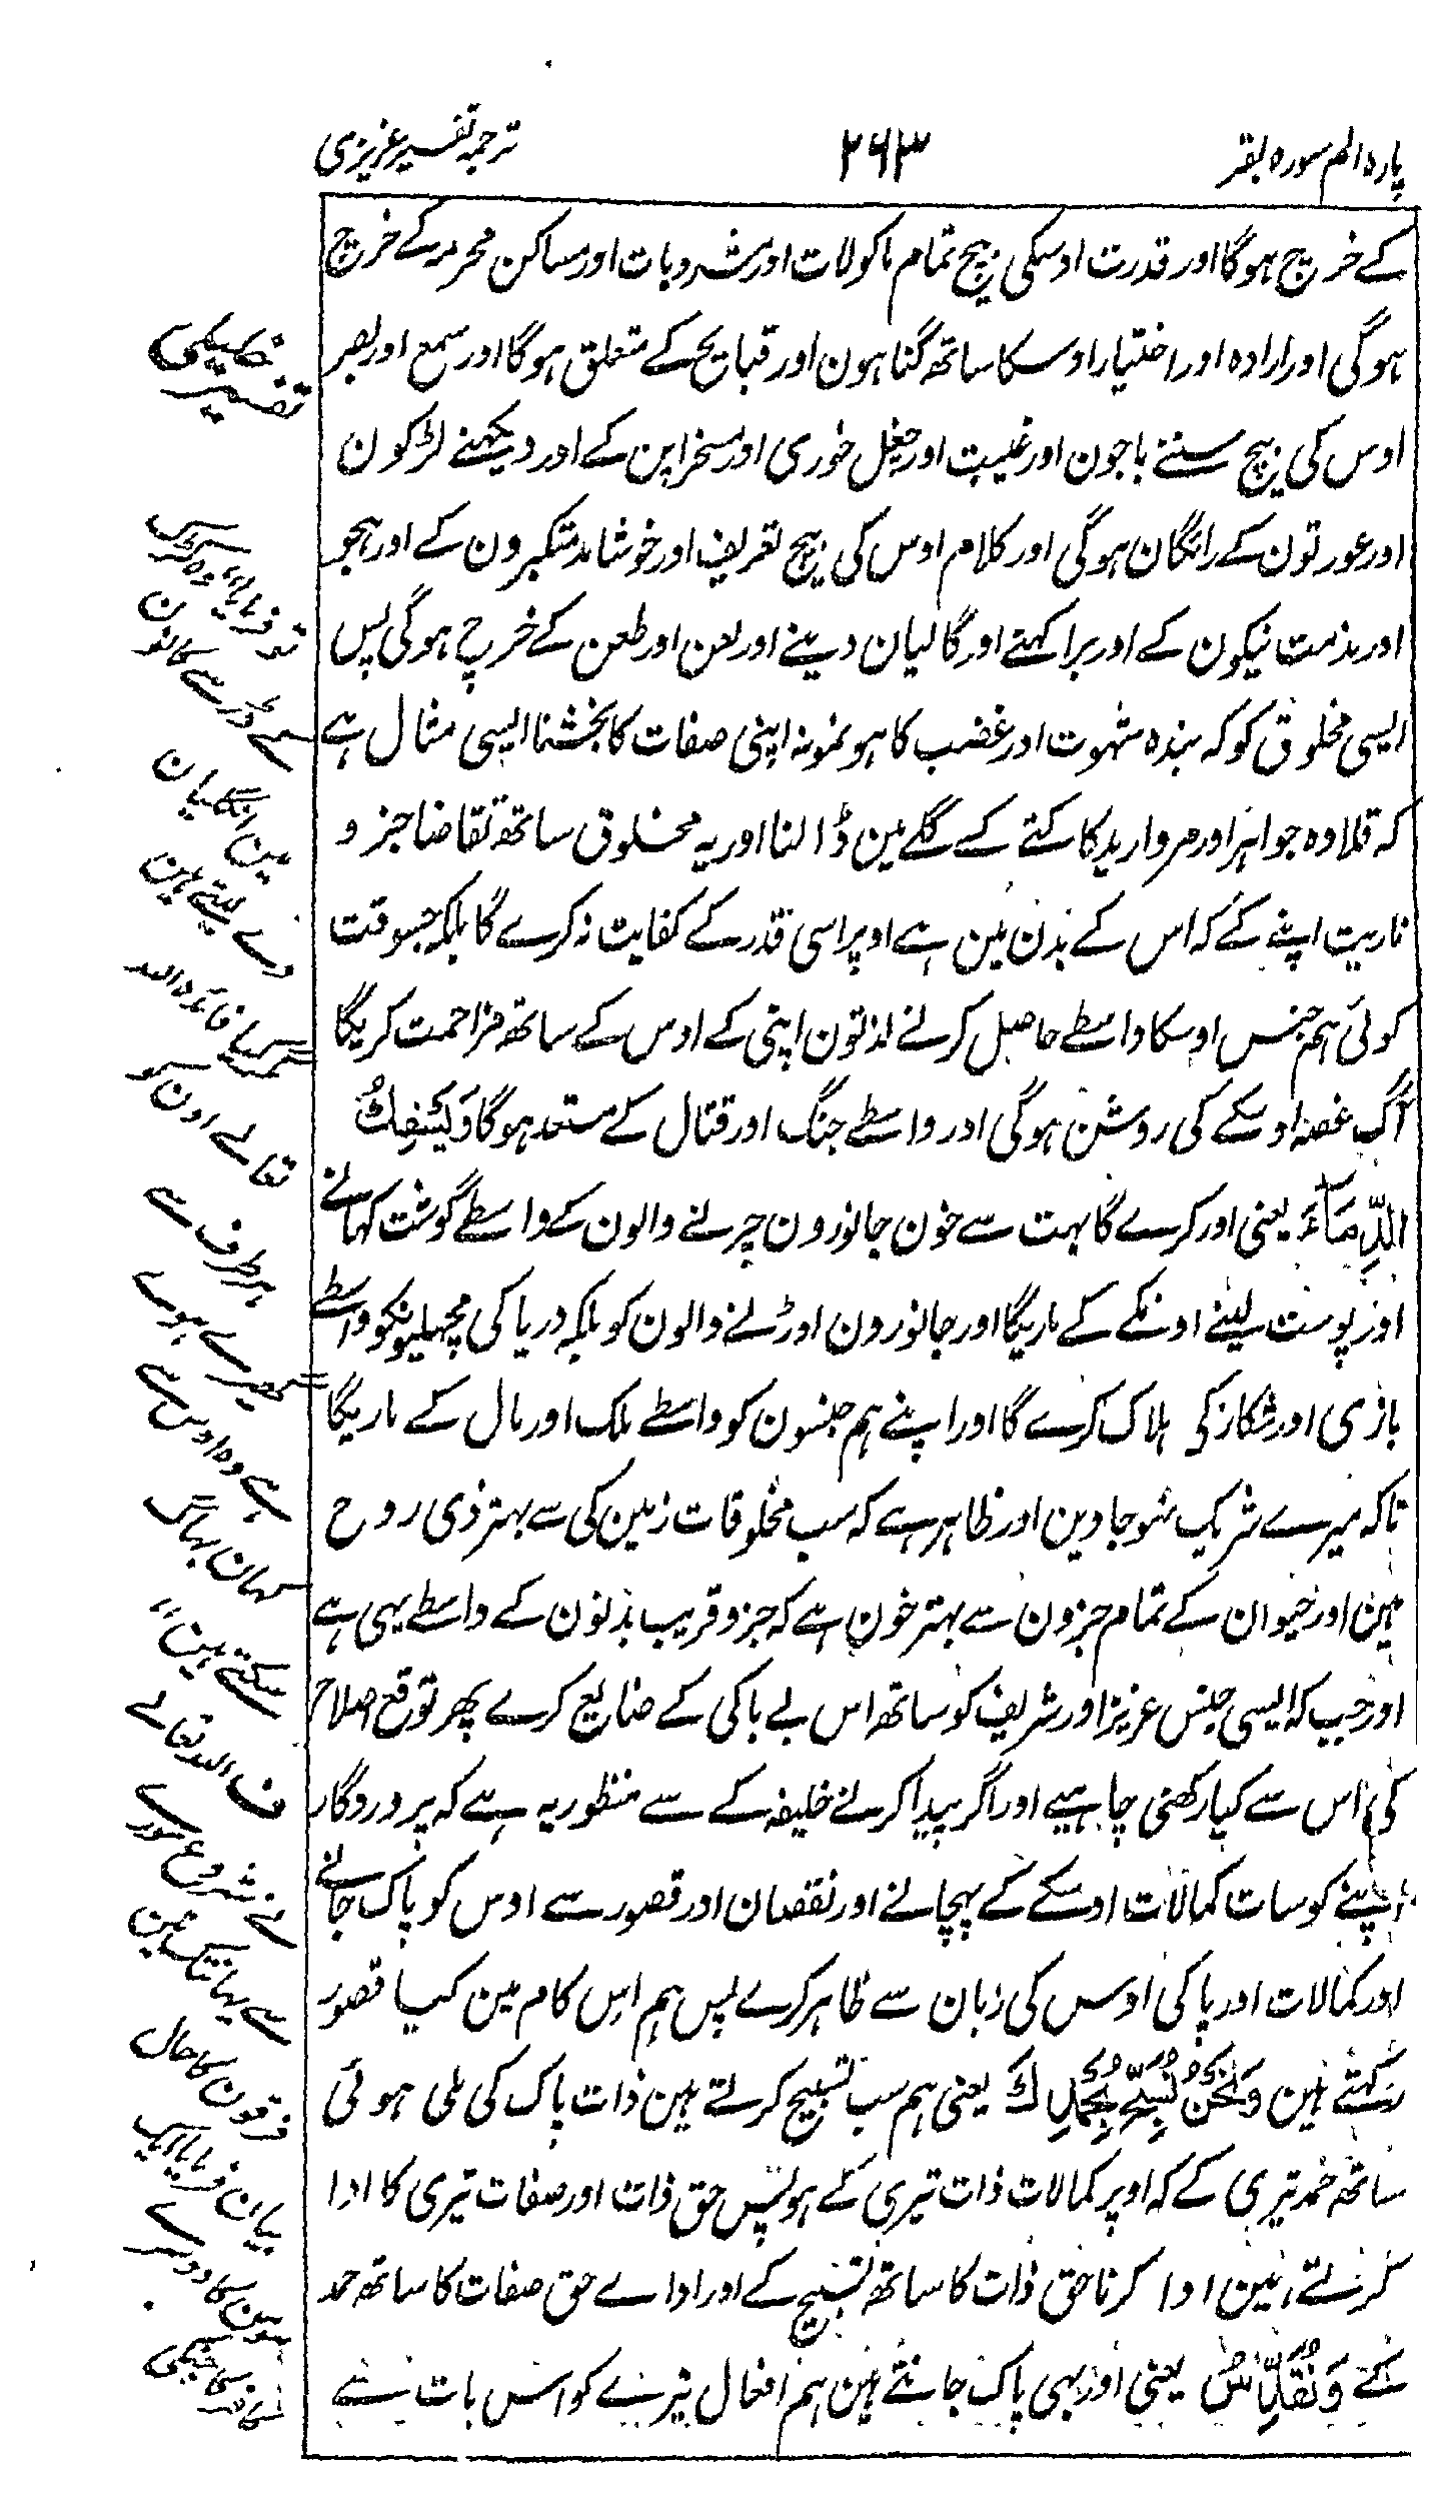 پارہ الم سورہ بقر
۲۶۳
ترجمہ تفسیر عزیزی
کے خرچ ہوگا اور قدرت اوسکی بیچ تمام ماکولات اور مشروبات اور مساکن محرمہ کے خرچ
ہوگی اور ارادہ اور اختیار اوسکا ساتھ گناہون اور قبایح کے متعلق ہوگا اور سمع اور بصر
اوس کی بیچ سننے باجون اور غیبت اور چغل خوری اور مسخراپن کے اور دیکھنے لڑکون
اور عورتون کے رائگان ہوگی اور کلام اوس کی بیچ تعریف اور خوشامد متکبرون کے اور ہجو
اور مذمت نیکون کے اور برا کہنے اور گالیان دینے اور لعن اور طعن کے خرچ ہوگی پس
ایسی مخلوق کو کہ بندہ شہوت اور غضب کا ہو نمونہ اپنی صفات کا بخشنا ایسی مثال ہے
کہ قلادہ جواہر اور مروارید کا کتے کے گلے مین ڈالنا اور یہ مخلوق ساتھ تقاضا جزو
ناریت اپنے کے کہ اس کے بدن مین ہے اوپر اسی قدر کے کفایت نہ کرے گا بلکہ جسوقت
کوئی ہم جنس اوسکا واسطے حاصل کرنے لذتون اپنی کے اوس کے ساتھ مزاحمت کریگا
آگ غصہ اوسکے کی روشن ہوگی اور واسطے جنگ اور قتال کے مستعد ہوگا وَيَسْفِكُ
الدِّمَآءَ یعنی اور کرے گا بہت سے خون جانورون چرنے والون کے واسطے گوشت کہانے
اور پوست لینے اونکے کے ماریگا اور جانورون اوڑنے والون کو بلکہ دریا کی مچھلیونکو واسطے
بازی اور شکار کی ہلاک کرے گا اور اپنے ہم جنسون کو واسطے ملک اور مال کے ماریگا
تاکہ میرے شریک نہو جاوین اور ظاہر ہے کہ سب مخلوقات زمین کی سے بہتر ذی روح
ہین اور حیوان کے تمام جزون سے بہتر خون ہے کہ جزو قریب بدنون کے واسطے یہی ہے
اور جب کہ ایسی جنس عزیز اور شریف کو ساتھ اس بے باکی کے ضایع کرے پھر توقع اصلاح
کی اس سے کیا رکھنی چاہیے اور اگر پیدا کرنے خلیفہ کے سے منظور یہ ہے کہ پروردگار
اپنے کو سات کمالات اوسکے کے پہچانے اور نقصان اور قصور سے اوس کو پاک جانے
اور کمالات اور پاکی اوس کی زبان سے ظاہر کرے پس ہم اس کام مین کیا قصور
رکہتے ہین وَنَحْنُ نُسَبِّحُ بِحَمْدِكَ یعنی ہم سب تسبیح کرتے ہین ذات پاک کی ملی ہوئی
ساتھ حمد تیری کے کہ اوپر کمالات ذات تیری کے ہو پس حق ذات اور صفات تیری کا ادا
کرتے ہین ادا کرنا حق ذات کا ساتھ تسبیح کے اور ادائے حق صفات کا ساتھ حمد
کے وَنُقَدِّسُ یعنی اور بہی پاک جانتے ہین ہم افعال تیرے کو اس بات سے
تو فرمایا
سے ڈر سے کانون
مین انگلیان
دے لیتے ہین
تعالے اون کو
ہر طرف سے
گھیرے ہوے
ہے وہ اوس سے
کہان بہاگ
سکتے ہین"
ف اللہ تعالے
نے شروع سورے
سے یہانتک تین
فرقون کا حال
بیان فرمایا ایک
مومن کا دوسرے